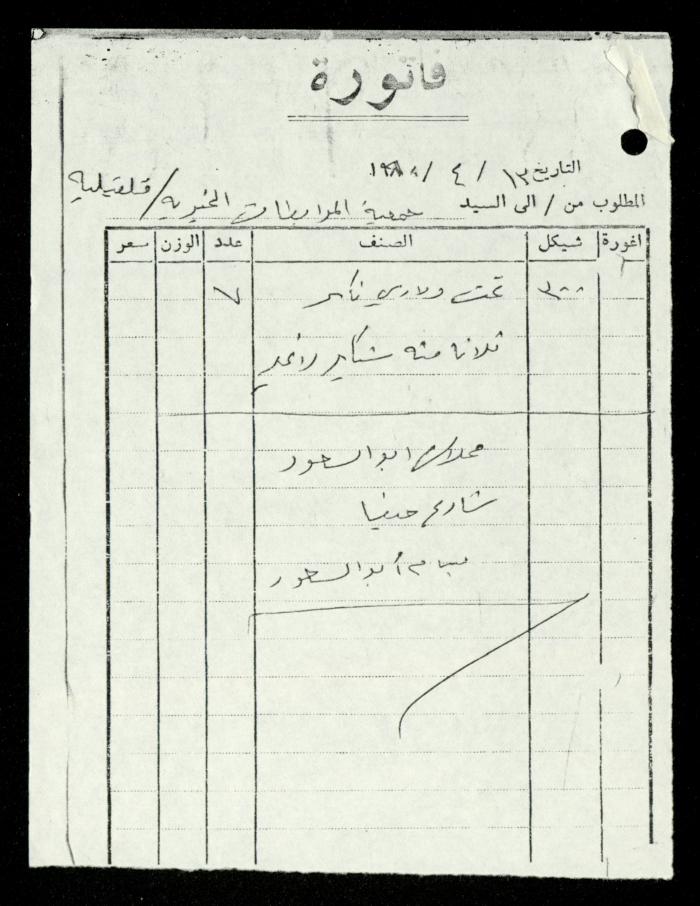 فاتورة
التاريخ ١٣ / ٤ / ١٩٨
المطلوب من / الى السيد جمعية المرابطات الخيرية / قلقيلية
اغورة شيكل الصنف عدد الوزن سعر
٣٠٠ تخت ولادي ٧
ثلاثماية شيكل
محلات ابو السعود
شارع
بسام أبو السعود